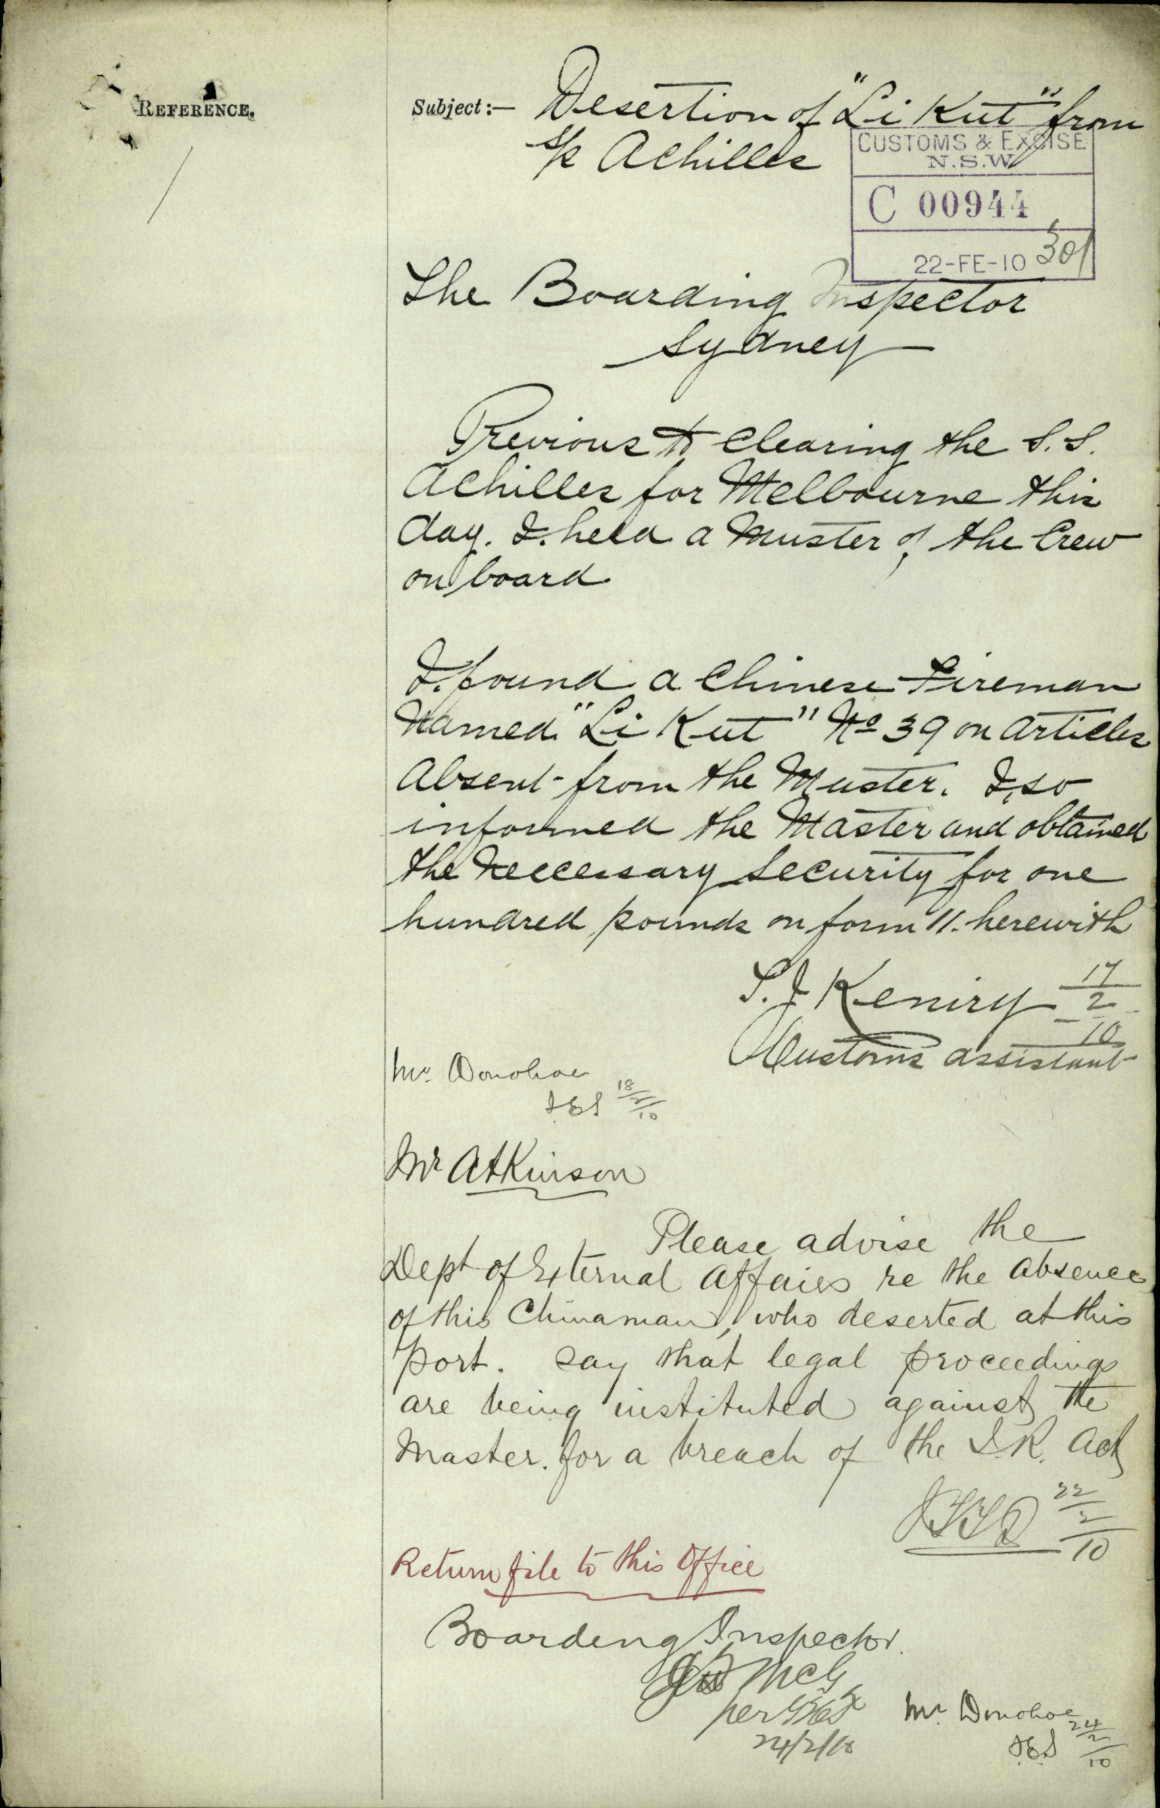 REFERENCE.
Subject:— Desertion of "Li Kut" from
s/s Achilles
CUSTOMS & EXCISE
N.S.W.
C 00944
22-FE-10 301
The Boarding Inspector
Sydney
Previous to clearing the S.S.
Achilles for Melbourne this
day. I. held a Muster of the Crew
on board
I. found a Chinese Fireman
Named "Li Kut" No 39 on Articles
Absent from the Muster. I, so
informed the Master and obtained
the Neccessary Security for one
hundred pounds on form 11. herewith
S. J Keniry 17/2/10
Customs assistant
Mr. Donohoe
18/2/10
Mr Atkinson
Please advise the
Dept of External Affairs re the absence
of this Chinaman, who deserted at this
Port. Say that legal proceedings
are being instituted against the
Master. for a breach of the I.R. Act
22/2/10
Return file to this Office
Boarding Inspector.
McG
per
24/2/10
Mr. Donohoe
24/2/10